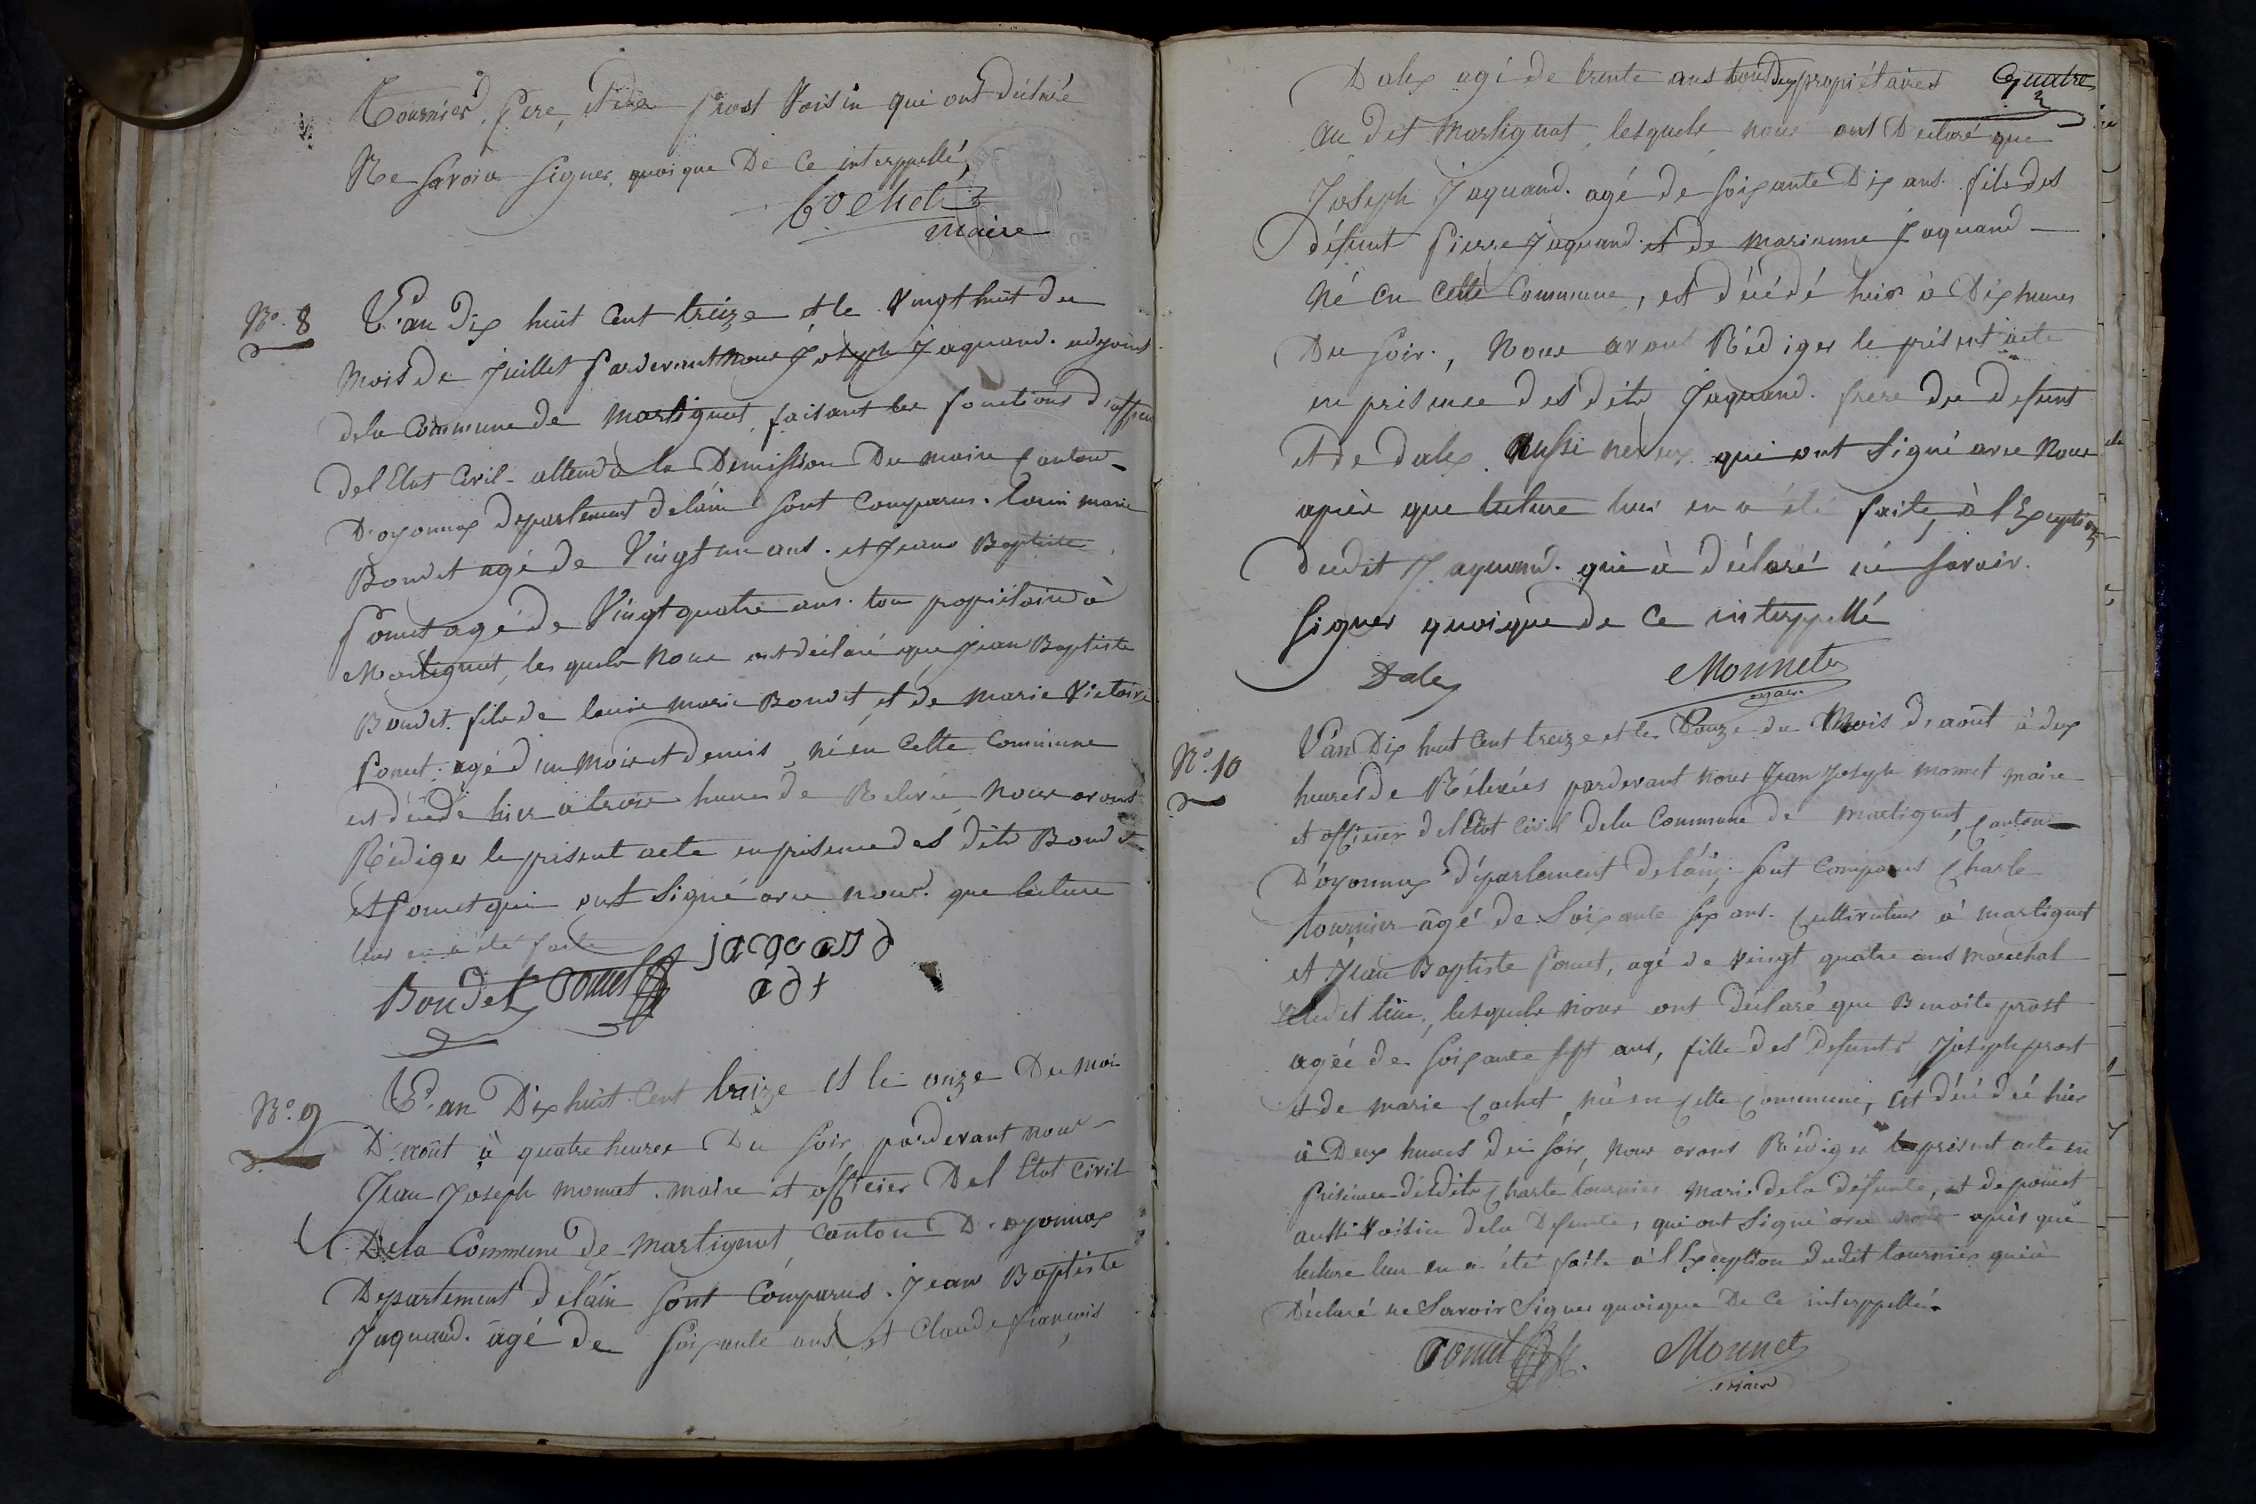 Tournier, pere, et prost Voisin qui ont déclaré
Ne savoir signer, quoique De Ce interppellé,
Cochet
maire
No. 8
L'an Dix huit Cent treize et le Vingt huit du
Mois de Juillet pardevant Nous Joseph Jaquand. adjoint
dela Commune de Martignat, faisant les fonctions d'officier
del Etat Civil attendu la Demission Du maire Canton
D'oyonnax departement delain sont Comparus. Louis marie
Bondet agé de Vingt un ans. et Jean Baptiste
Ponnet agé de Vingt quatre ans. tou propriétaires à
Martignat, les quels Nous ont déclaré que Jean Baptiste
Bondet. fils de Louis Marie Bondet, et de Marie Victoire
Ponnet. agé d'un Mois et demis, né en Cette Commune
est décédé hier a trois heures de Relevée, Nous avons
Rédiger le présent acte en présence des dits Bondet
et Ponnet qui ont signé avec nous. que lecture
leur en a été faite
Bondet Ponnet jaquand
adt
No. 9
L'an Dix huit Cent treize et le onze Du Moi
D'aoüt à quatre heures Du soir, pardevant nous
Jean Joseph monnet. maire et officier Del Etat Civil
Dela Commune de Martignat Canton D'oyonnax
Departement delain sont Comparus. Jean Baptiste
Jaquand. agé De soixante ans et Claude françois
Quatre
Dalex agé de trente ans tous deux propriétaires
au dit Martignat, lesquels nous ont Déclaré que
Joseph Jaquand. agé de soixante Dix ans. fils des
défunt Pierre Jaquand. et de Marianne Jaquand
Né en Cette Commune, est décédé hier à Dix heures
Du soir., Nous avons Rédiger le présent acte
en présence des dits Jaquand. frere du defunt
et de dalex aussi neveux qui ont signé avec Nous
après que lecture leur en a été faite, à l'Exception
dudit Jaquand. qui à déclaré né savoir.
signer quoique de Ce interppellé
Dalex
Monnet
maire
No. 10
L'an Dix huit Cent treize et le Douze du Mois d'août à deux
heures de Rélevées pardevant nous Jean Joseph monnet maire
et officier del Etat Civil dela Commune de Martignat, Canton
D'oyonnax département delain. sont Comparus Charle
tournier âgé de Soixante six ans. Cultivateur à Martignat
et Jean Baptiste Ponnet, agé de Vingt quatre ans marechal
audit lieu, lesquels Nous ont déclaré que Benoite prost
agée de soixante sept ans, fille des defunts Joseph prost
et de marie Cochet, née en Cette Commune, est décédée hier
à Deux heures du soir, nous avons Rédiger le présent acte en
présence desdits Charle tournier Mari dela défunte, et de ponnet
aussi Voisin dela Defunte, qui ont signé avec nous après que
lecture leur en a été faite à l'Exception dudit tournier qui a
Déclaré ne Savoir Signer quoique De Ce interppellé.
Ponnet
Monnet
maire